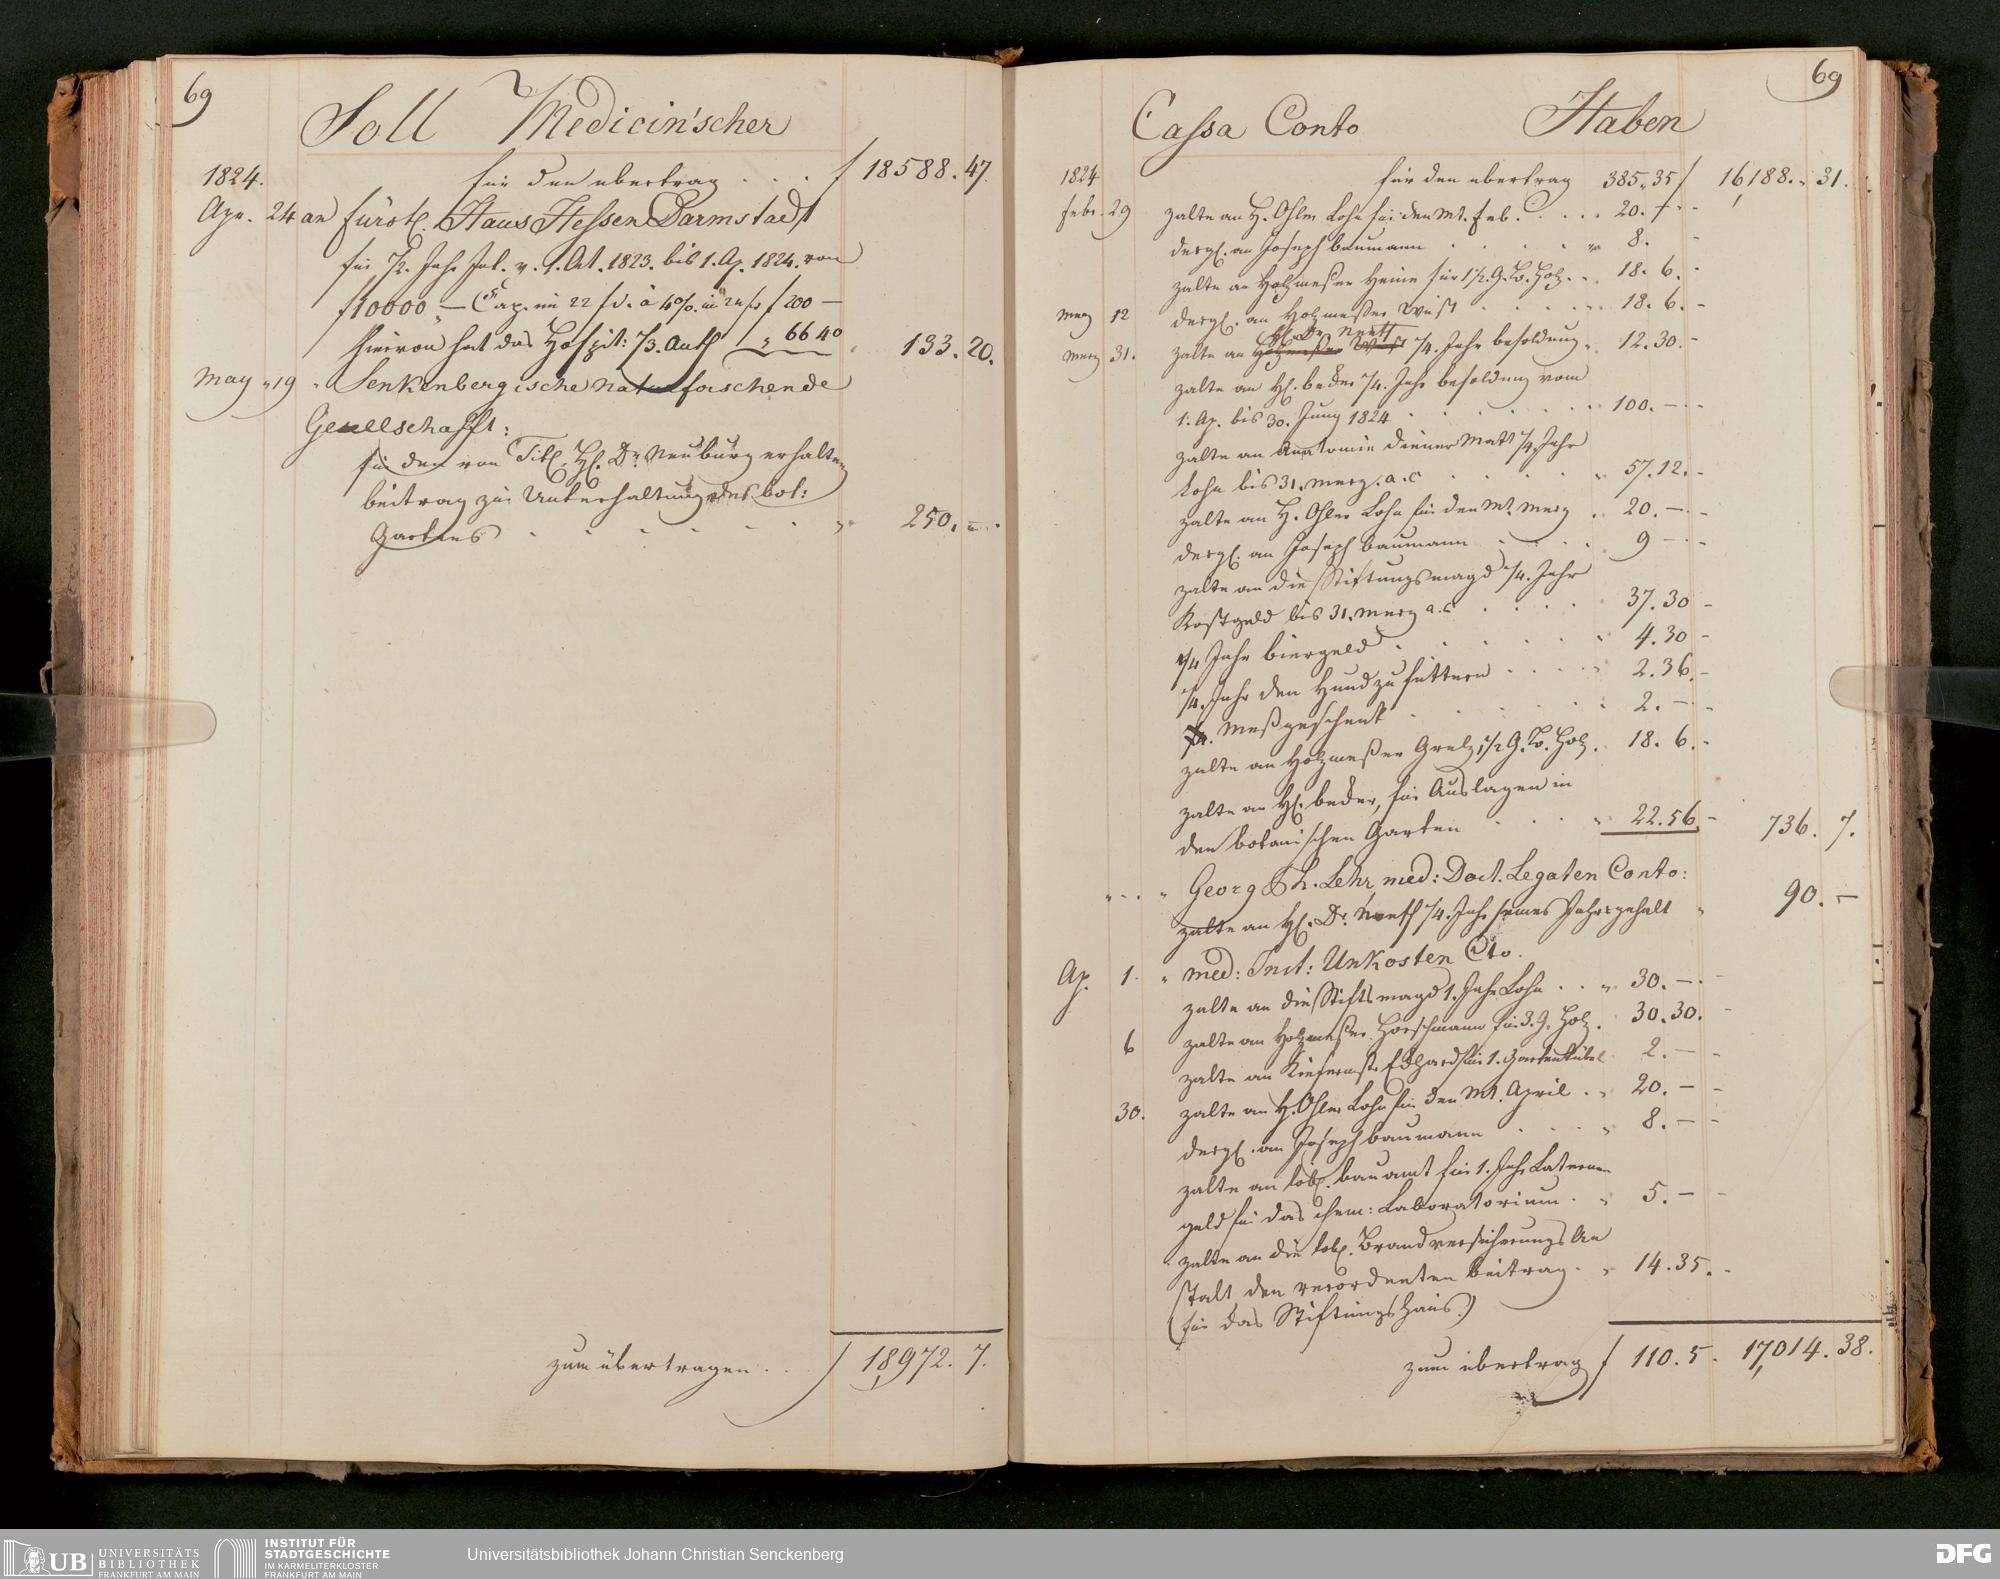 69
Soll Medicin'scher
1824. für den übertrag . . . f 18588. 47.
Apr. 24 an fürstl. Haus Hessen Darmstadt
für 1/2. Jahr Int. v. 1. Oct. 1823. bis 1. Ap. 1824. von
f 10000 „ — Cap. im 22 f à 4 % im 24 f f 200 —
hievon hat das Hospit: 1/3. Anth „ 66 40 133. 20.
May „ 19 „ Senkenbergische naturforschende
Gesellschafft:
für den von Titl. H. Dr. Neuburg erhalten
beitrag zur Unterhaltung des bot:
Gartens 250. —
zum übertragen . . f 18,972. 7.
69
Cassa Conto Haben
1824 für den übertrag 385. 35 f 16,188. 31.
febr. 29 zalte an H. Ohler Lohn für den Mt. feb. 20. —
dergl. an Joseph baumann 8. —
zalte an Holzmeßer Heine für 1 1/2. G. Holz 18. 6.
merz 12 dergl. an Holzmeßer Wüst 18. 6. —
merz 31. zalte an Hl. Dr. Neeff 1/4. Jahr besoldung 12. 30. —
zalte an Hl. beder 1/4. Jahr besoldung vom
1. Ap. bis 30. Juny 1824 100. —
zalte an Anatomie diener Matt 1/4. Jahr
Lohn bis 31. merz. a. c 57. 12. —
zalte an H. Ohler Lohn für den Mt. merz 20. —
dergl. an Joseph baumann 9 —
zalte an die Stiftungsmagd 1/4. Jahr
Kostgeld bis 31. merz a. c 37. 30 —
1/4 Jahr biergeld 4. 30 —
1/4. Jahr den Hund zu füttern 2. 36. —
Meßgeschenk 2. —
zalte an Holzmeßer 1 1/2 G. Holz 18. 6. —
zalte an Hl. beder, für Auslagen in
den botanischen Garten 22. 56 — 736. 7.
„ - „ Georg Ph. Lehr, med: Doct. Legaten Conto:
zalte an Hl. Dr. Neeff 1/4. Jahr seines Jahrgehalt 90. —
Ap. 1. „ med: Inst: Unkosten Cto.
zalte an die Stiftsmagd 1. Jahr Lohn 30. —
6 zalte an Holzmeßer Horschmann für 3. G. Holz 30. 30.
zalte an Kiefermstr Eckhard für 1. Gartenkübel 2. —
30. zalte an H. Ohler Lohn für den Mt. April 20. —
dergl. an Joseph baumann 8. —
zalte an löbl. bauamt für 1. Jahr Laternen
geld für das chem: Laboratorium 5. —
zalte an die löbl. Brandversicherungs An
stalt den verordneten beitrag 14. 35. —
(für das Stiftungshaus.)
zum übertrag f 110. 5. 17,014. 38.
UB UNIVERSITÄTS
BIBLIOTHEK
FRANKFURT AM MAIN
INSTITUT FÜR
STADTGESCHICHTE
IM KARMELITERKLOSTER
FRANKFURT AM MAIN
Universitätsbibliothek Johann Christian Senckenberg
DFG